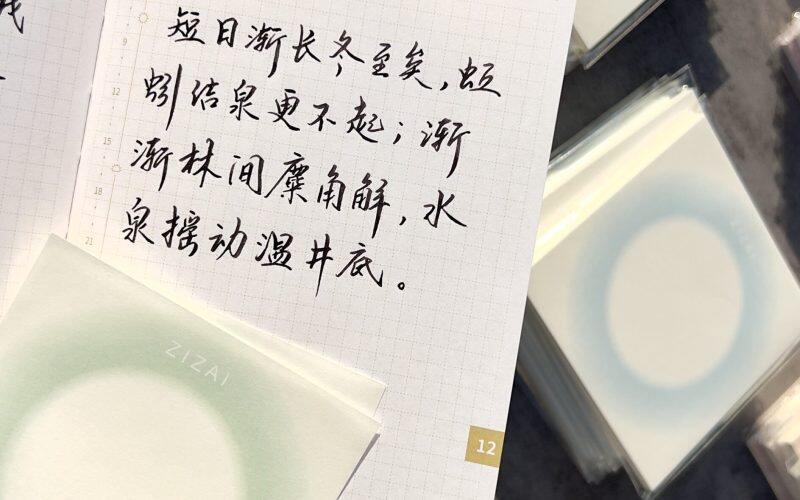 短日渐长冬至矣，蚯
蚓结泉更不起；渐
渐林间麋角解，水
泉摇动温井底。
9
12
15
18
21
ZIZAI
12
ZIZAI